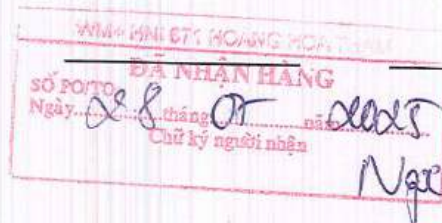 WM+ HNI 671 HOANG HOA THAM
ĐÃ NHẬN HÀNG
SỐ PO/TO
Ngày 28 tháng 05 năm 2025
Chữ ký người nhận